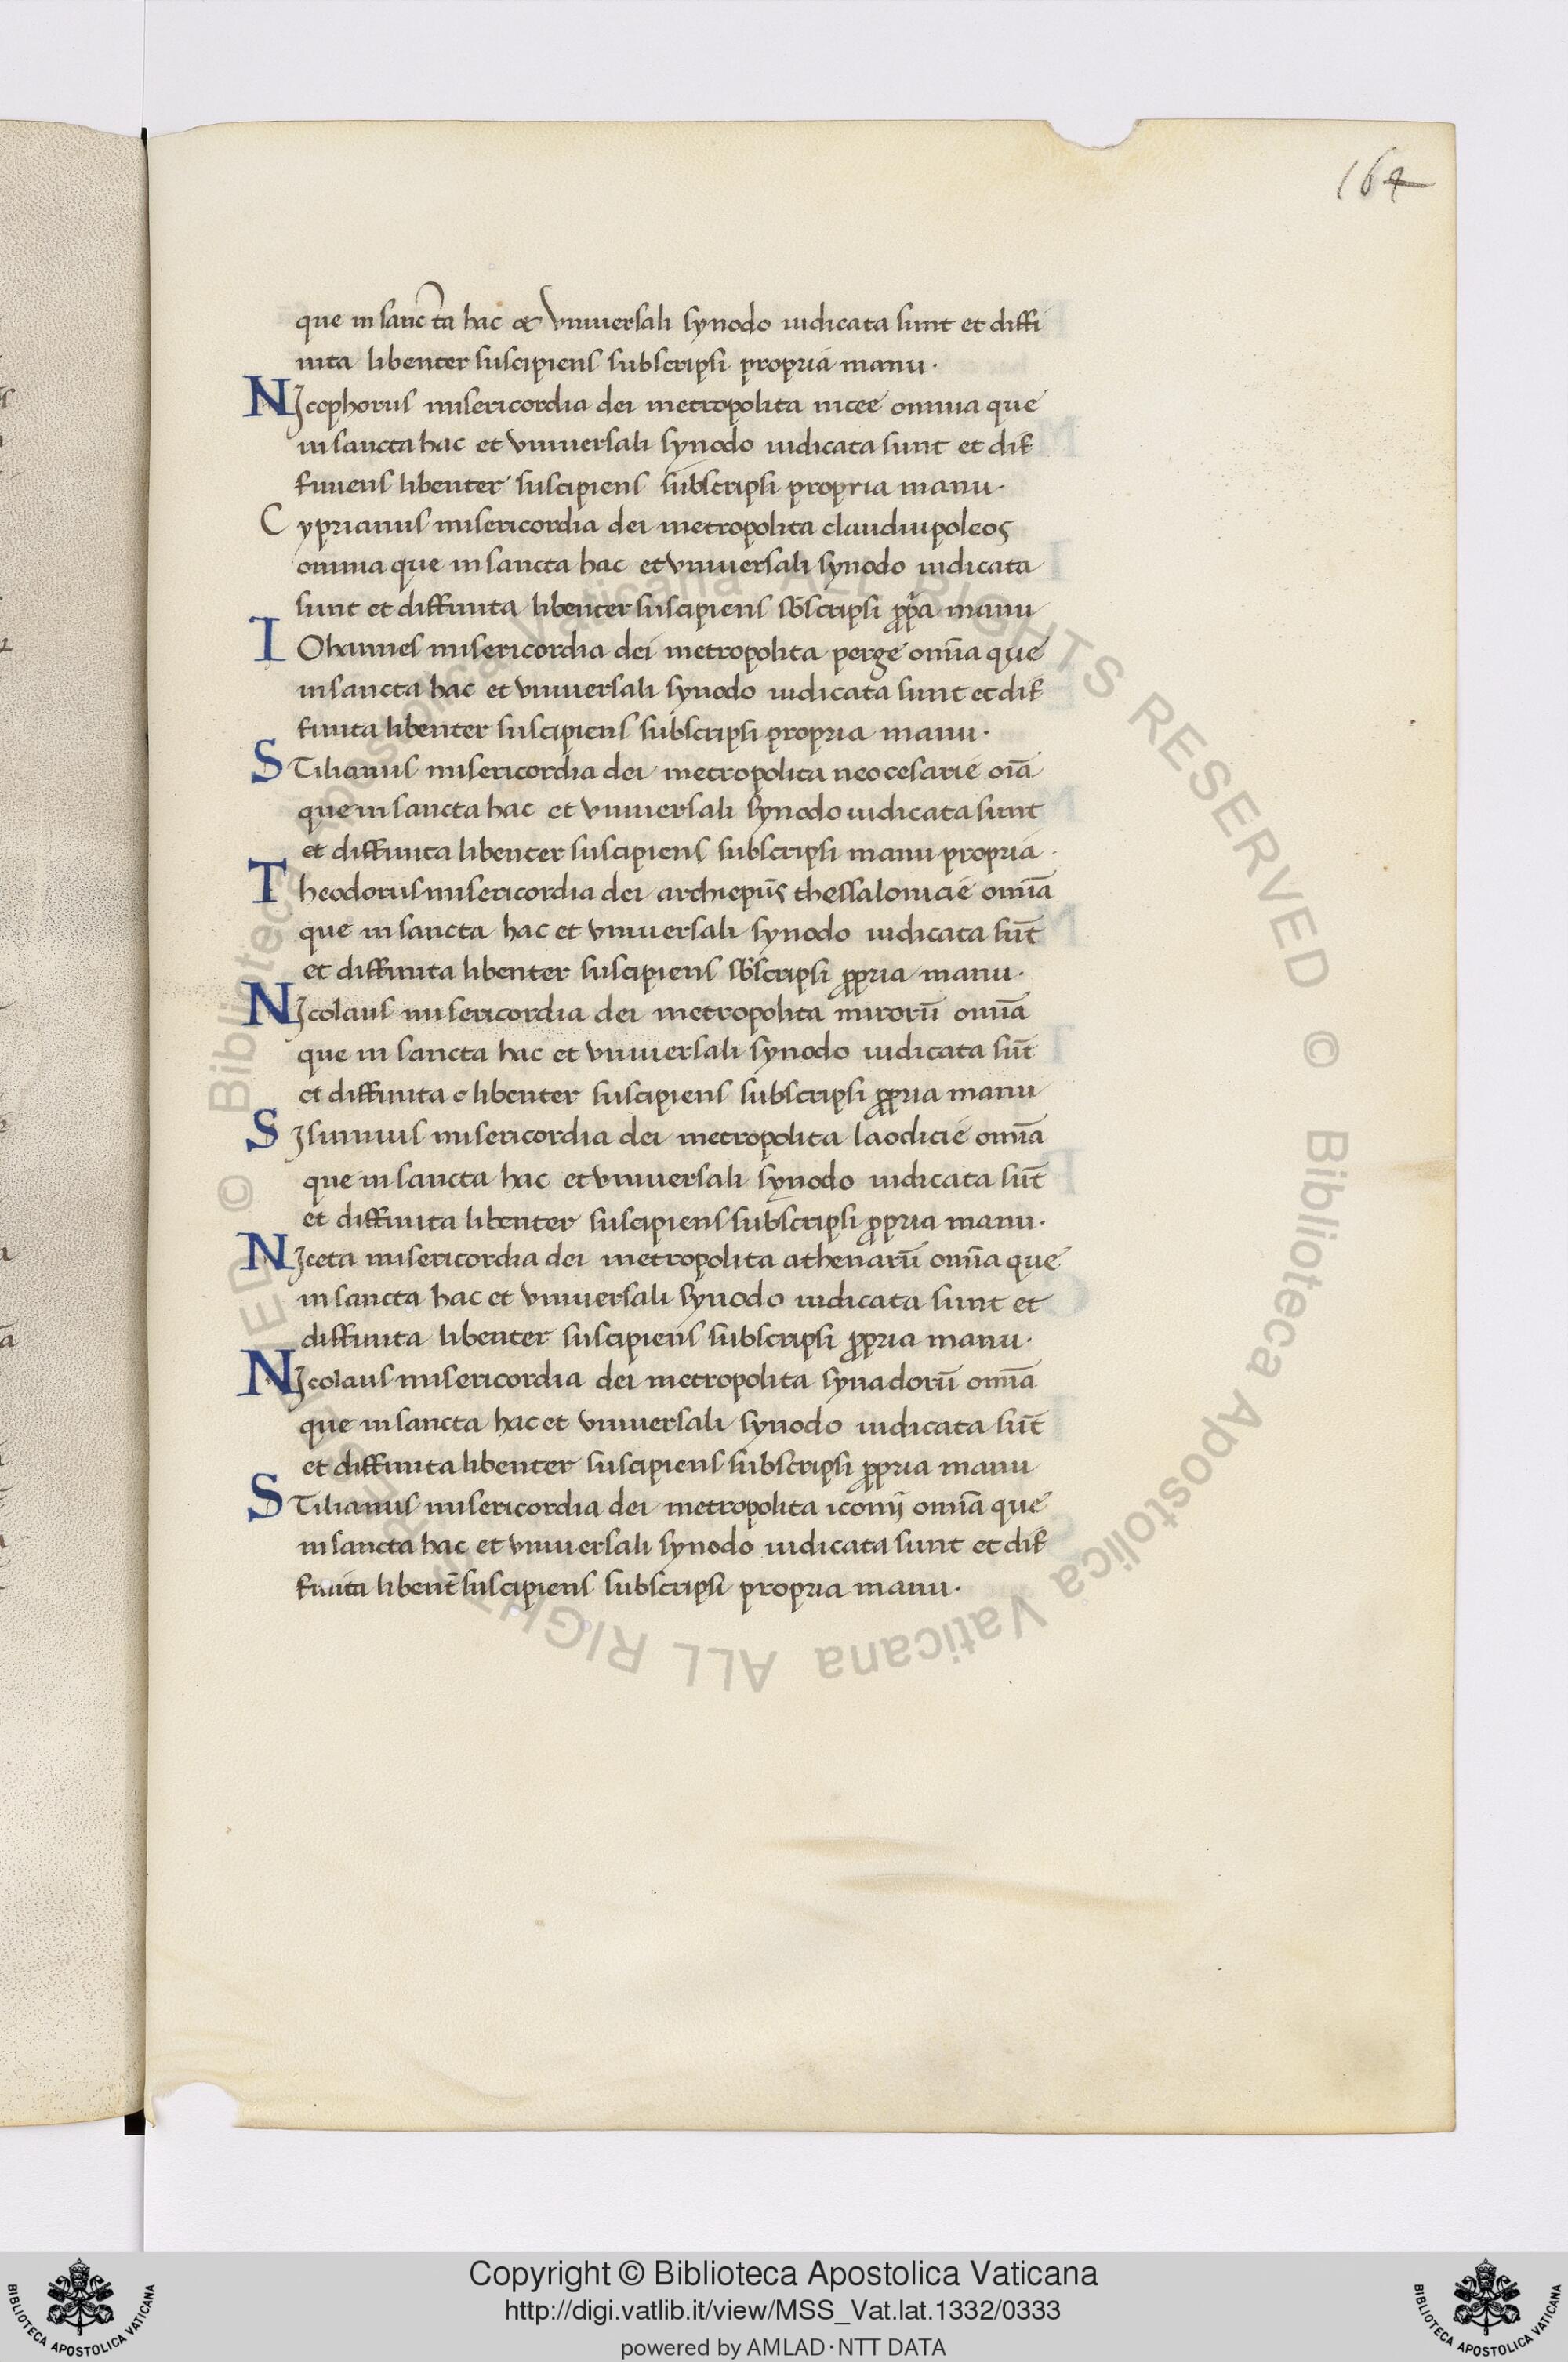 164
que in sancta hac & vniuersali synodo iudicata sunt et diffi
nita libenter suscipiens subscripsi propria manu.
NIcephorus misericordia dei metropolita nicee omnia que
in sancta hac et vniuersali synodo iudicata sunt et dif
finiens libenter suscipiens subscripsi propria manu.
Cyprianus misericordia dei metropolita claudiupoleos
omnia que in sancta hac et vniuersali synodo iudicata
sunt et diffinita libenter suscipiens sb̄scripsi ꝓp̄a manu
IOhannes misericordia dei metropolita perge om̄ia que
in sancta hac et vniuersali synodo iudicata sunt et dif
finita libenter suscipiens subscripsi propria manu.
STilianus misericordia dei metropolita neocesarie oīa
que in sancta hac et vniuersali synodo iudicata sunt
et diffinita libenter suscipiens subscripsi manu propria.
Theodorus misericordia dei archiep̄us thessalonicie om̄ia
que in sancta hac et vniuersali synodo iudicata sūt
et diffinita libenter suscipiens sb̄scripsi ꝓpria manu.
NIcolaus misericordia dei metropolita mirorū om̄ia
que in sancta hac et vniuersali synodo iudicata sūt
et diffinita c libenter suscipiens subscripsi ꝓpria manu
SIsinnius misericordia dei metropolita laodicie om̄ia
que in sancta hac et vniuersali synodo iudicata sūt
et diffinita libenter suscipiens subscripsi ꝓpria manu.
NIceta misericordia dei metropolita athenarū om̄ia que
in sancta hac et vniuersali synodo iudicata sunt et
diffinita libenter suscipiens subscripsi ꝓpria manu.
NIcolaus misericordia dei metropolita synadorū om̄ia
que in sancta hac et vniuersali synodo iudicata sūt
et diffinita libenter suscipiens subscripsi ꝓpria manu
STilianus misericordia dei metropolita iconij om̄ia que
in sancta hac et vniuersali synodo iudicata sunt et dif
finita libent̄ suscipiens subscripsi propria manu.
Copyright © Biblioteca Apostolica Vaticana
http://digi.vatlib.it/view/MSS_Vat.lat.1332/0333
powered by AMLAD·NTT DATA
BIBLIOTECA APOSTOLICA VATICANA
BIBLIOTECA APOSTOLICA VATICANA
© Biblioteca Apostolica Vaticana ALL RIGHTS RESERVED © Biblioteca Apostolica Vaticana ALL RIGHTS RESERVED